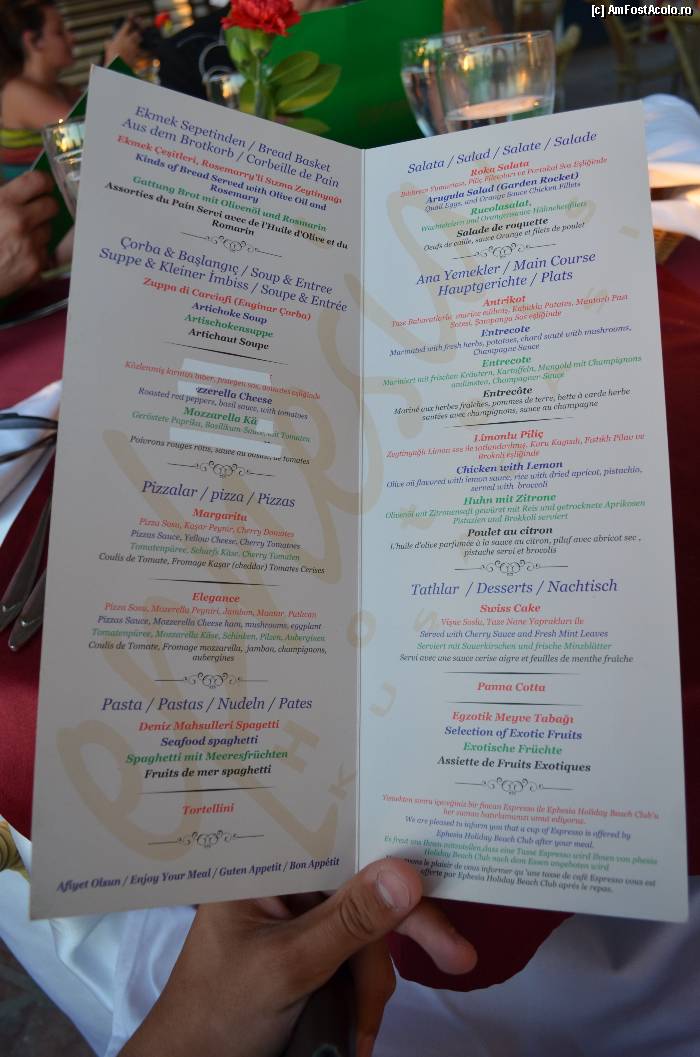 [c] AmFostAcolo.ro
Ekmek Sepetinden / Bread Basket
Aus dem Brotkorb / Corbeille de Pain
Ekmek Çeşitleri, Rosemarry'li Sızma Zeytinyağı
Kinds of Bread Served with Olive Oil and
Rosemary
Gattung Brot mit Olivenöl und Rosmarin
Assorties du Pain Servi avec de l'Huile d'Olive et du
Romarin
Çorba & Başlangıç / Soup & Entree
Suppe & Kleiner İmbiss / Soupe & Entrée
Zuppa di Carciofi (Enginar Çorba)
Artichoke Soup
Artischokensuppe
Artichaut Soupe
Közlenmiş kırmızı biber, fesleğen sos, domates eşliğinde
zzerella Cheese
Roasted red peppers, basil sauce, with tomatoes
Mozzarella Kä
Geröstete Paprika, Basilikum-Sauce, mit Tomaten
Poivrons rouges rôtis, sauce au basilic, de tomates
Pizzalar / pizza / Pizzas
Margarita
Pizza Sosu, Kaşar Peynir, Cherry Domates
Pizzas Sauce, Yellow Cheese, Cherry Tomatoes
Tomatenpüree, Scharfs Käse, Cherry Tomaten
Coulis de Tomate, Fromage Kaşar (cheddar) Tomates Cerises
Elegance
Pizza Sosu, Mozerella Peyniri, Jambon, Mantar, Patlıcan
Pizzas Sauce, Mozzerella Cheese ham, mushrooms, eggplant
Tomatenpüree, Mozzarella Käse, Schinken, Pilzen, Auberginen
Coulis de Tomate, Fromage mozzarella, jambon, champignons,
aubergines
Pasta / Pastas / Nudeln / Pates
Deniz Mahsulleri Spagetti
Seafood spaghetti
Spaghetti mit Meeresfrüchten
Fruits de mer spaghetti
Tortellini
Afiyet Olsun / Enjoy Your Meal / Guten Appetit / Bon Appétit
Salata / Salad / Salate / Salade
Roka Salata
Bıldırcın Yumurtası, Piliç Filetoları ve Portakal Sos Eşliğinde
Arugula Salad (Garden Rocket)
Quail Eggs, and Orange Sauce Chicken Fillets
Rucolasalat,
Wachteleiern und Orangensauce Hähnchenfilets
Salade de roquette
Oeufs de caille, sauce Orange et filets de poulet
Ana Yemekler / Main Course
Hauptgerichte / Plats
Antrikot
Taze Baharatlarla marine edilmiş, Kabuklu Patates, Mantarlı Pazı
Sotesi, Şampanya Sos eşliğinde
Entrecote
Marinated with fresh herbs, potatoes, chard sauté with mushrooms,
Champagne Sauce
Entrecote
Mariniert mit frischen Kräutern, Kartoffeln, Mangold mit Champignons
Champagner-Sauce
Entrecôte
Mariné aux herbes fraîches, pommes de terre, bette à carde herbe
sautées avec champignons, sauce au champagne
Limonlu Piliç
Zeytinyağlı Limon sos ile tatlandırılmış, Kuru Kayısılı, Fıstıklı Pilav ve
Brokoli Eşliğinde
Chicken with Lemon
Olive oil flavored with lemon sauce, rice with dried apricot, pistachio,
served with broccoli
Huhn mit Zitrone
Olivenöl mit Zitronensaft gewürzt mit Reis und getrocknete Aprikosen
Pistazien und Brokkoli serviert
Poulet au citron
L'huile d'olive parfumée à la sauce au citron, pilaf avec abricot sec ,
pistache servi et brocolis
Tathlar / Desserts / Nachtisch
Swiss Cake
Vişne Soslu, Taze Nane Yaprakları ile
Served with Cherry Sauce and Fresh Mint Leaves
Serviert mit Sauerkirschen und frische Minzblätter
Servi avec une sauce cerise aigre et feuilles de menthe fraîche
Panna Cotta
Egzotik Meyve Tabağı
Selection of Exotic Fruits
Exotische Früchte
Assiette de Fruits Exotiques
Yemekten sonra içeceğiniz bir fincan Espresso ile Ephesia Holiday Beach Club'u
her zaman hatırlamanızı umut ediyoruz.
We are pleased to inform you that a cup of Espresso is offered by
Ephesia Holiday Beach Club after your meal.
Es freut uns Ihnen mitzuteilen,dass eine Tasse Espresso wird Ihnen von phesia
Holiday Beach Club nach dem Essen angeboten wird
le plaisir de vous informer qu 'une tasse de café Espresso vous est
offerte par Ephesia Holiday Beach Club après le repas.